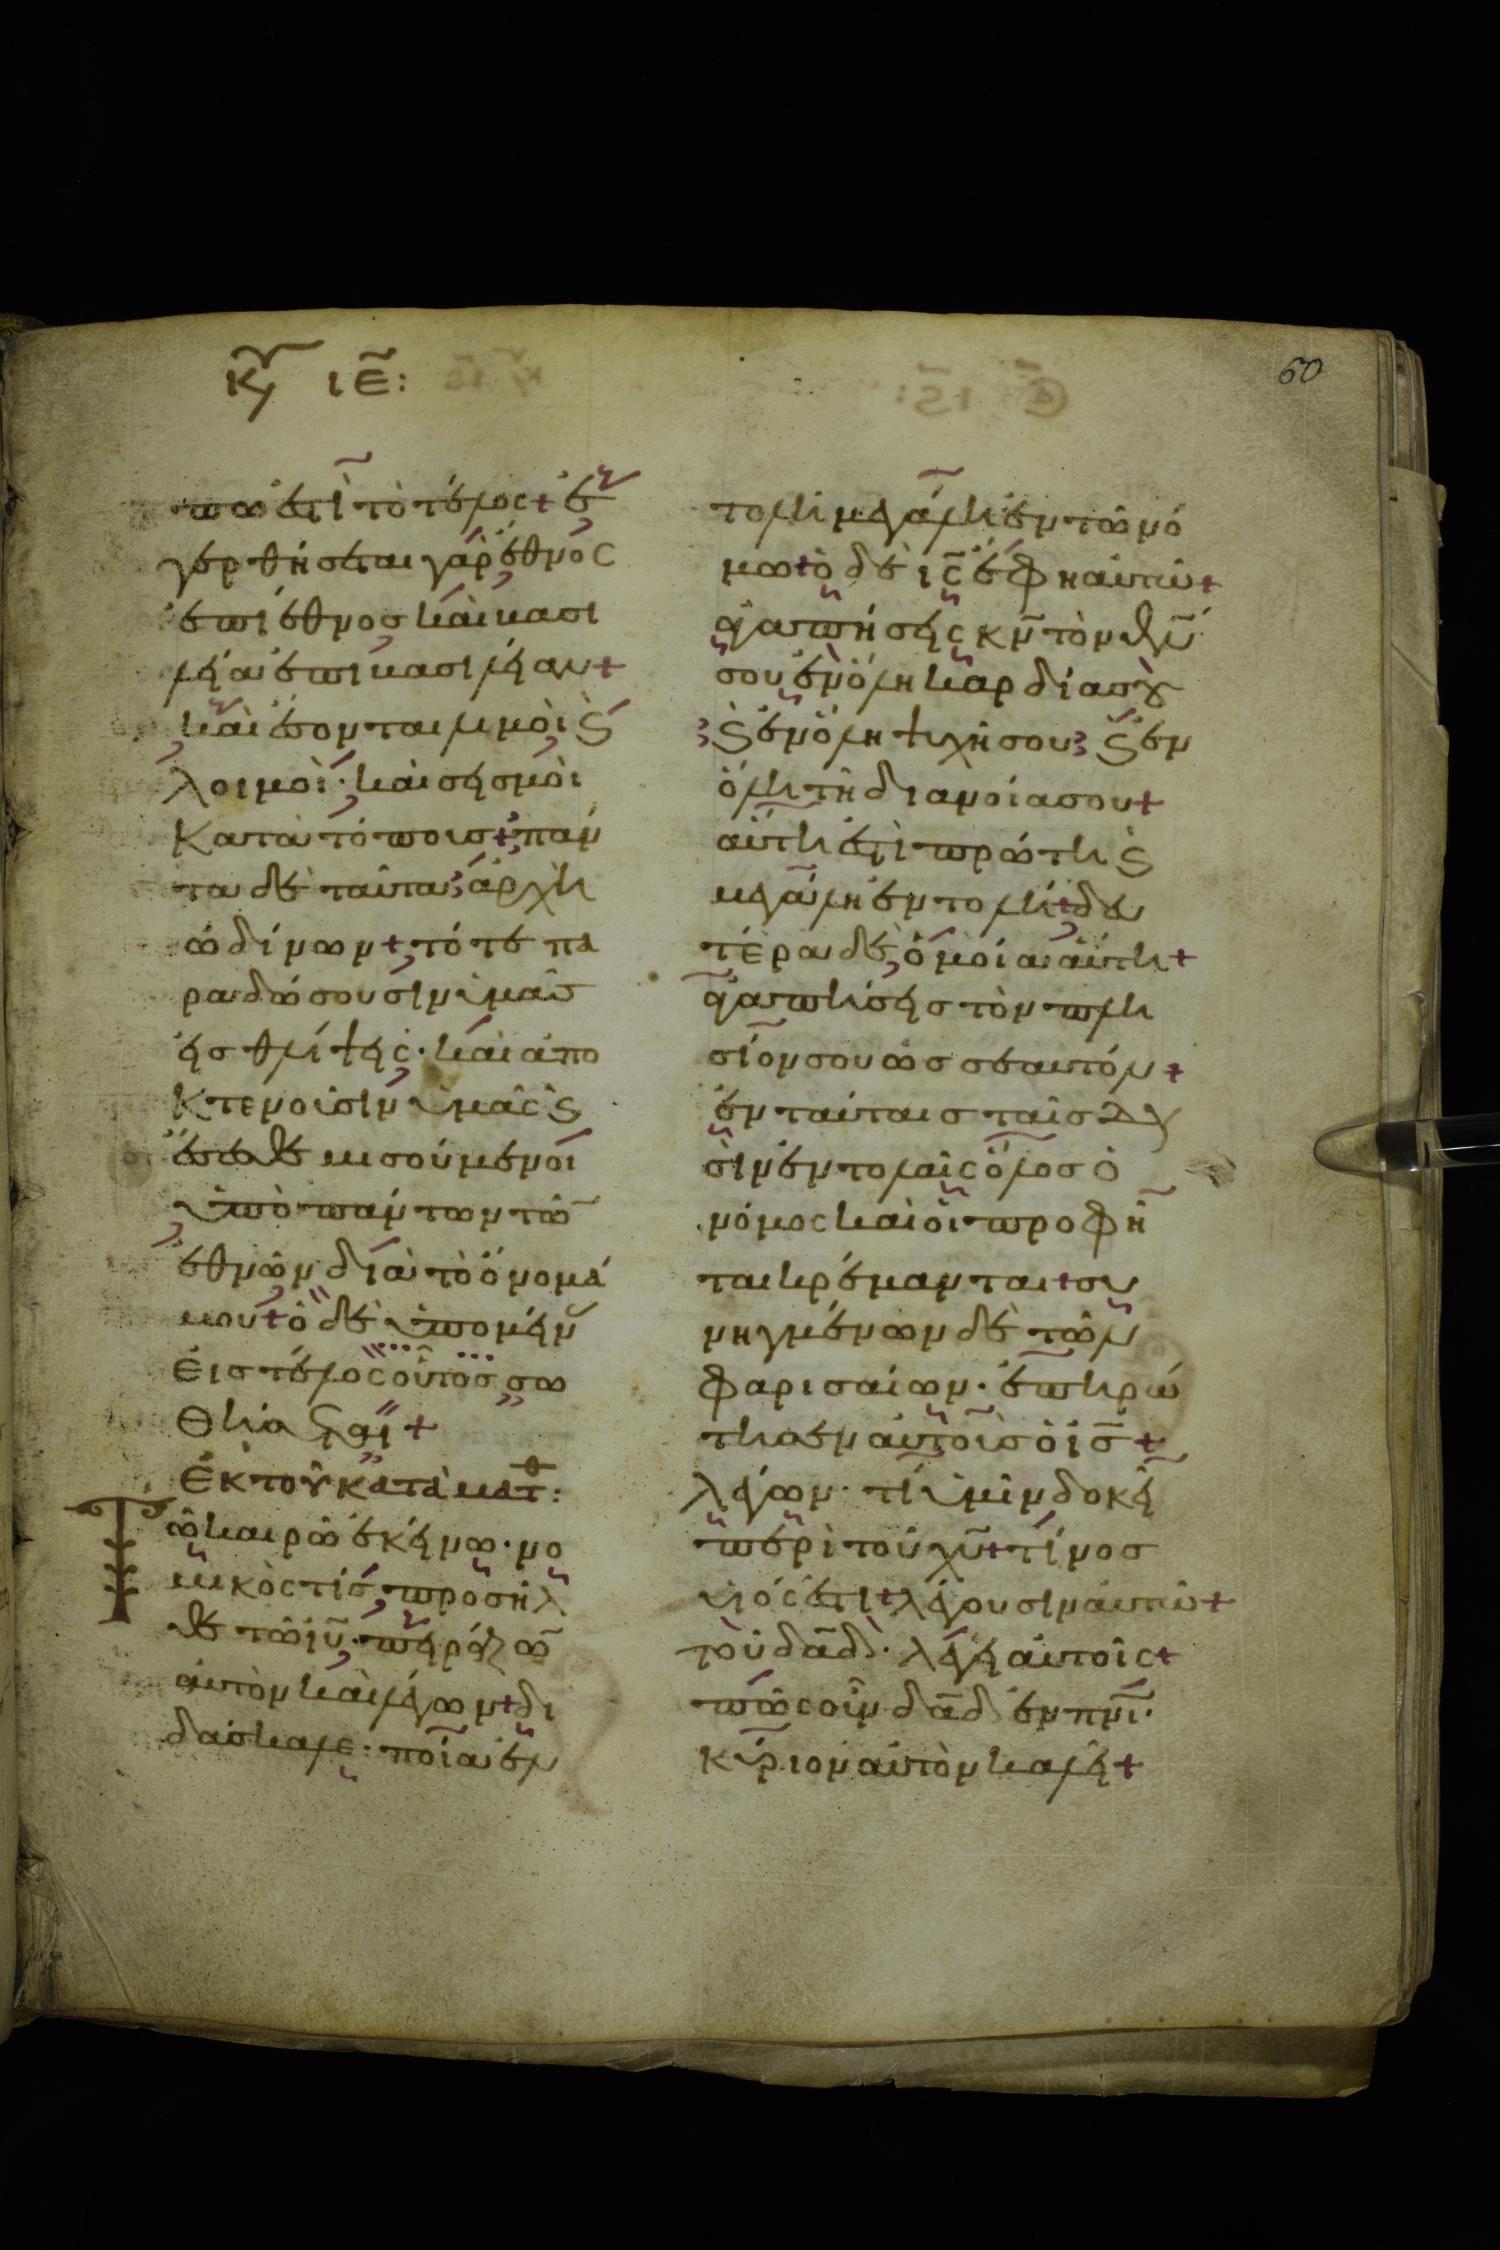 Κυ ιε:
60
πω ἐστὶ τὸ τέλος + ἐ
γερθήσεται γὰρ ἔθνος
ἐπὶ ἔθνος καὶ βασι
λεία ἐπι βασιλείαν +
καὶ ἔσονται λιμοὶ ϗ
λοιμοὶ· καὶ σεισμοὶ
κατὰ τόπους + πάν
τα δὲ ταῦτα ἀρχὴ
ὠδίνων + τότε πα
ραδώσουσιν ὑμᾶς
εἰς θλίψεις· καὶ ἀπο
κτενοῦσιν ὑμᾶς ϗ
ἔσεσθε μισούμενοι
ὑπὸ πάντων τῶ̅
ἐθνῶν διὰ τὸ ὄνομά
μου + ὁ δὲ ὑπομείν
εἰς τέλος οὗτος σω
θήσεται +
Ἐκ τοῦ κατὰ ματθ:
Τῶ καιρῶ ἐκείνω· νο
μικός τίς προσῆλ
θε τῶ ιυ̅· πειράζω̅
αὐτὸν καὶ λέγων + δι
δάσκαλε· ποία ἐν
τολὴ μεγάλη ἐν τῶ νό
μω + ὁ δὲ ις̅ ἔφη αὐτῶ +
ἀγαπήσεις κν̅ τὸν θν̅
σου ἐν ὅλη καρδία σου
ϗ ἐν ὅλη ψυχῆ σου ϗ ἐν
ὅλη τῆ διανοία σου +
αὕτη ἐστὶ πρώτη ϗ
μεγάλη ἐντολή + δευ
τέρα δὲ ὁμοία αὐτῆ +
ἀγαπήσεις τὸν πλη
σίον σου ὡς σεαυτόν +
ἐν ταύταις ταῖς δυ
σὶν ἐντολαῖς ὅλος ὁ
νόμος καὶ οἱ προφῆ
ται κρέμανται + συ
νηγμένων δὲ τῶν
φαρισαίων· ἐπηρώ
τησεν αὐτοῖς ὁ ις̅ +
λέγων· τί ὑμῖν δοκεῖ
περὶ τοῦ χυ̅ + τίνος
υἱός ἐστι + λέγουσιν αὐτῶ +
τοῦ δα̅δ· λέγει αὐτοῖς +
πῶς οὖν δα̅δ ἐν πνι̅·
κύριον αὐτὸν καλεῖ +